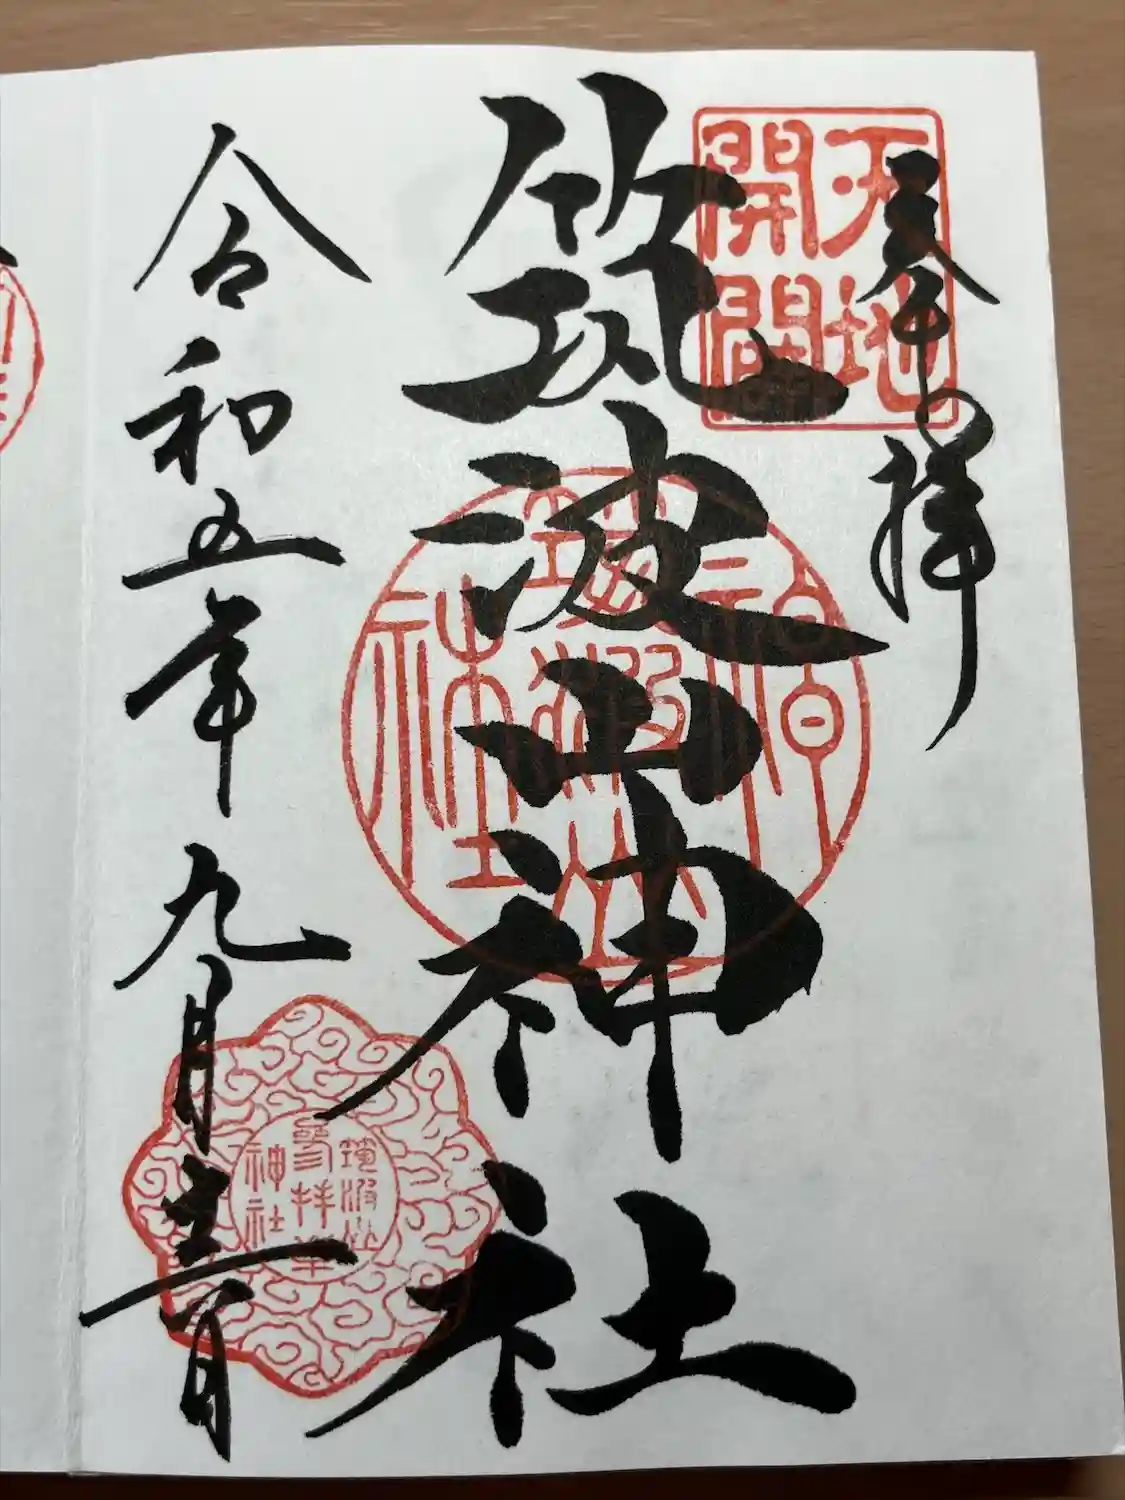 奉拝
天地
開闢
筑波山神社
筑波山
神社
令和五年九月
筑波山
参拝章
神社